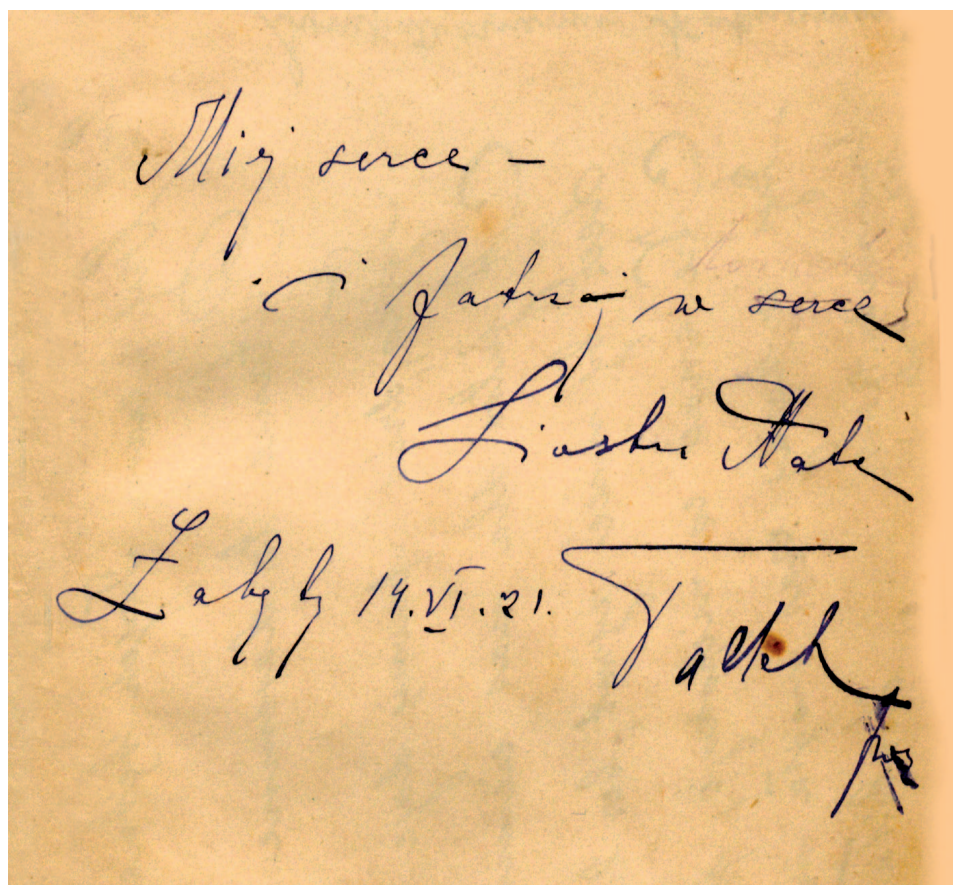 Miej serce –
i patrzaj w serce
Siostrze Nacie
Zabyły 14.VI.21.
Tadek